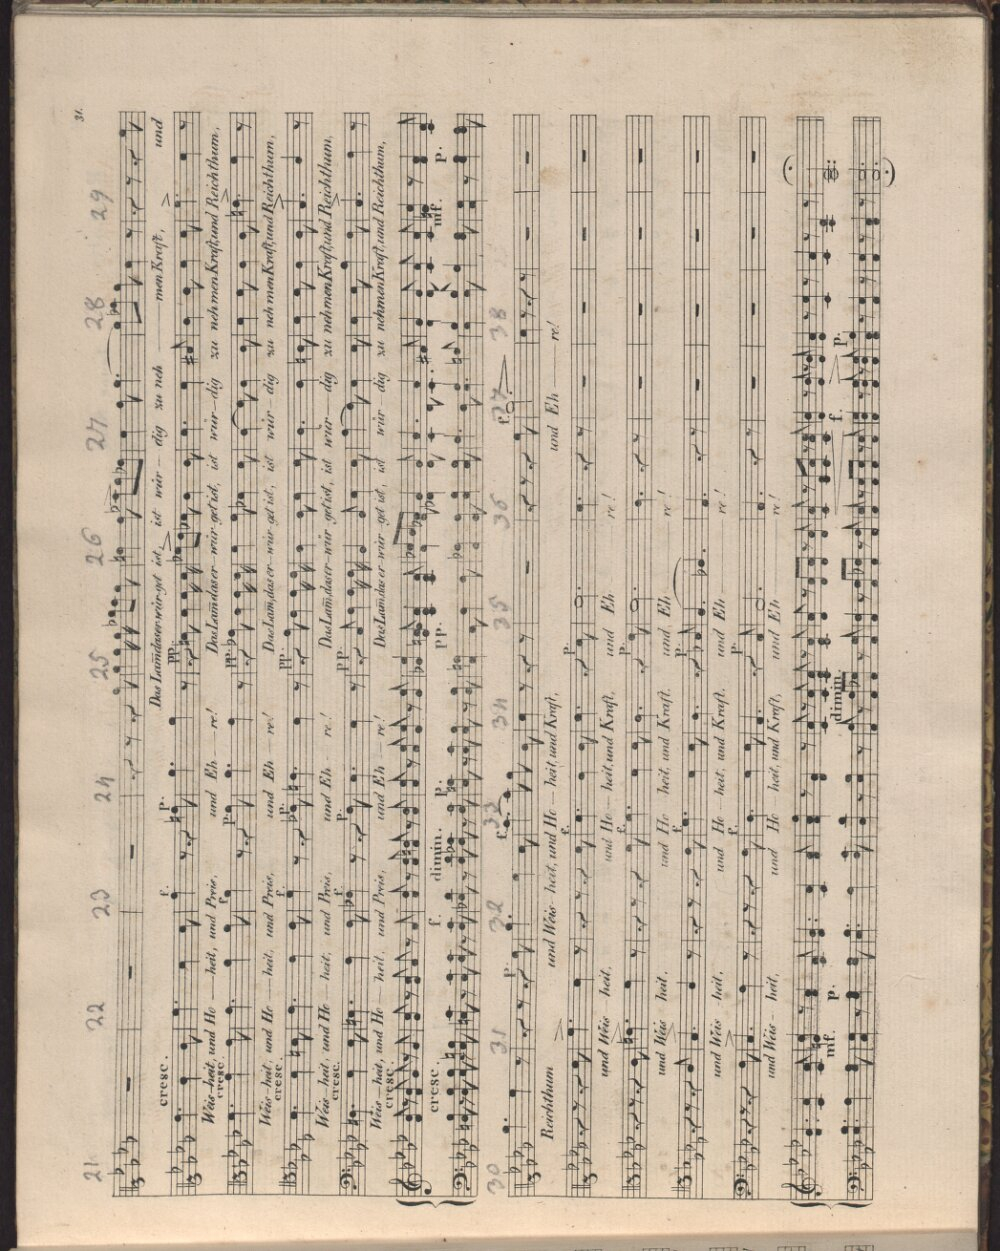 31.
21 22 23 24 25 26 27 28 29
Das Lam̄ das er-wür-get ist, ist wür – dig zu neh – men Kraft, und
cresc. f. p. pp.
Weis-heit, und He – heit, und Preis, und Eh – re! Das Lam̄, das er-wür-get ist, ist wür-dig zu neh men Kraft, und Reichthum,
cresc. f. p. pp.
Weis-heit, und He – heit, und Preis, und Eh – re! Das Lam, das er-wür-get ist, ist wür – dig zu neh men Kraft, und Reichthum,
cresc. f. p. pp.
Weis-heit, und He – heit, und Preis, und Eh – re! Das Lam̄, das er-wür-get ist, ist wür – dig zu neh men Kraft, und Reichthum,
cresc. f. p. pp.
Weis-heit, und He – heit, und Preis, und Eh – re! Das Lam̄, das er-wür-get ist, ist wür – dig zu nehmen Kraft, und Reichthum,
cresc. f. dimin. p. pp. mf. p.
30 31 32 33 34 35 36 37 38
p. f. f.
Reichthum und Weis – heit, und He – heit, und Kraft, und Eh – re!
f. p.
und Weis heit, und He – heit, und Kraft, und Eh re!
f. p.
und Weis heit, und He – heit, und Kraft, und Eh re!
f. p.
und Weis heit, und He – heit, und Kraft, und Eh re!
f. p.
und Weis – heit, und He – heit, und Kraft, und Eh re!
mf. p. dimin. f. p.